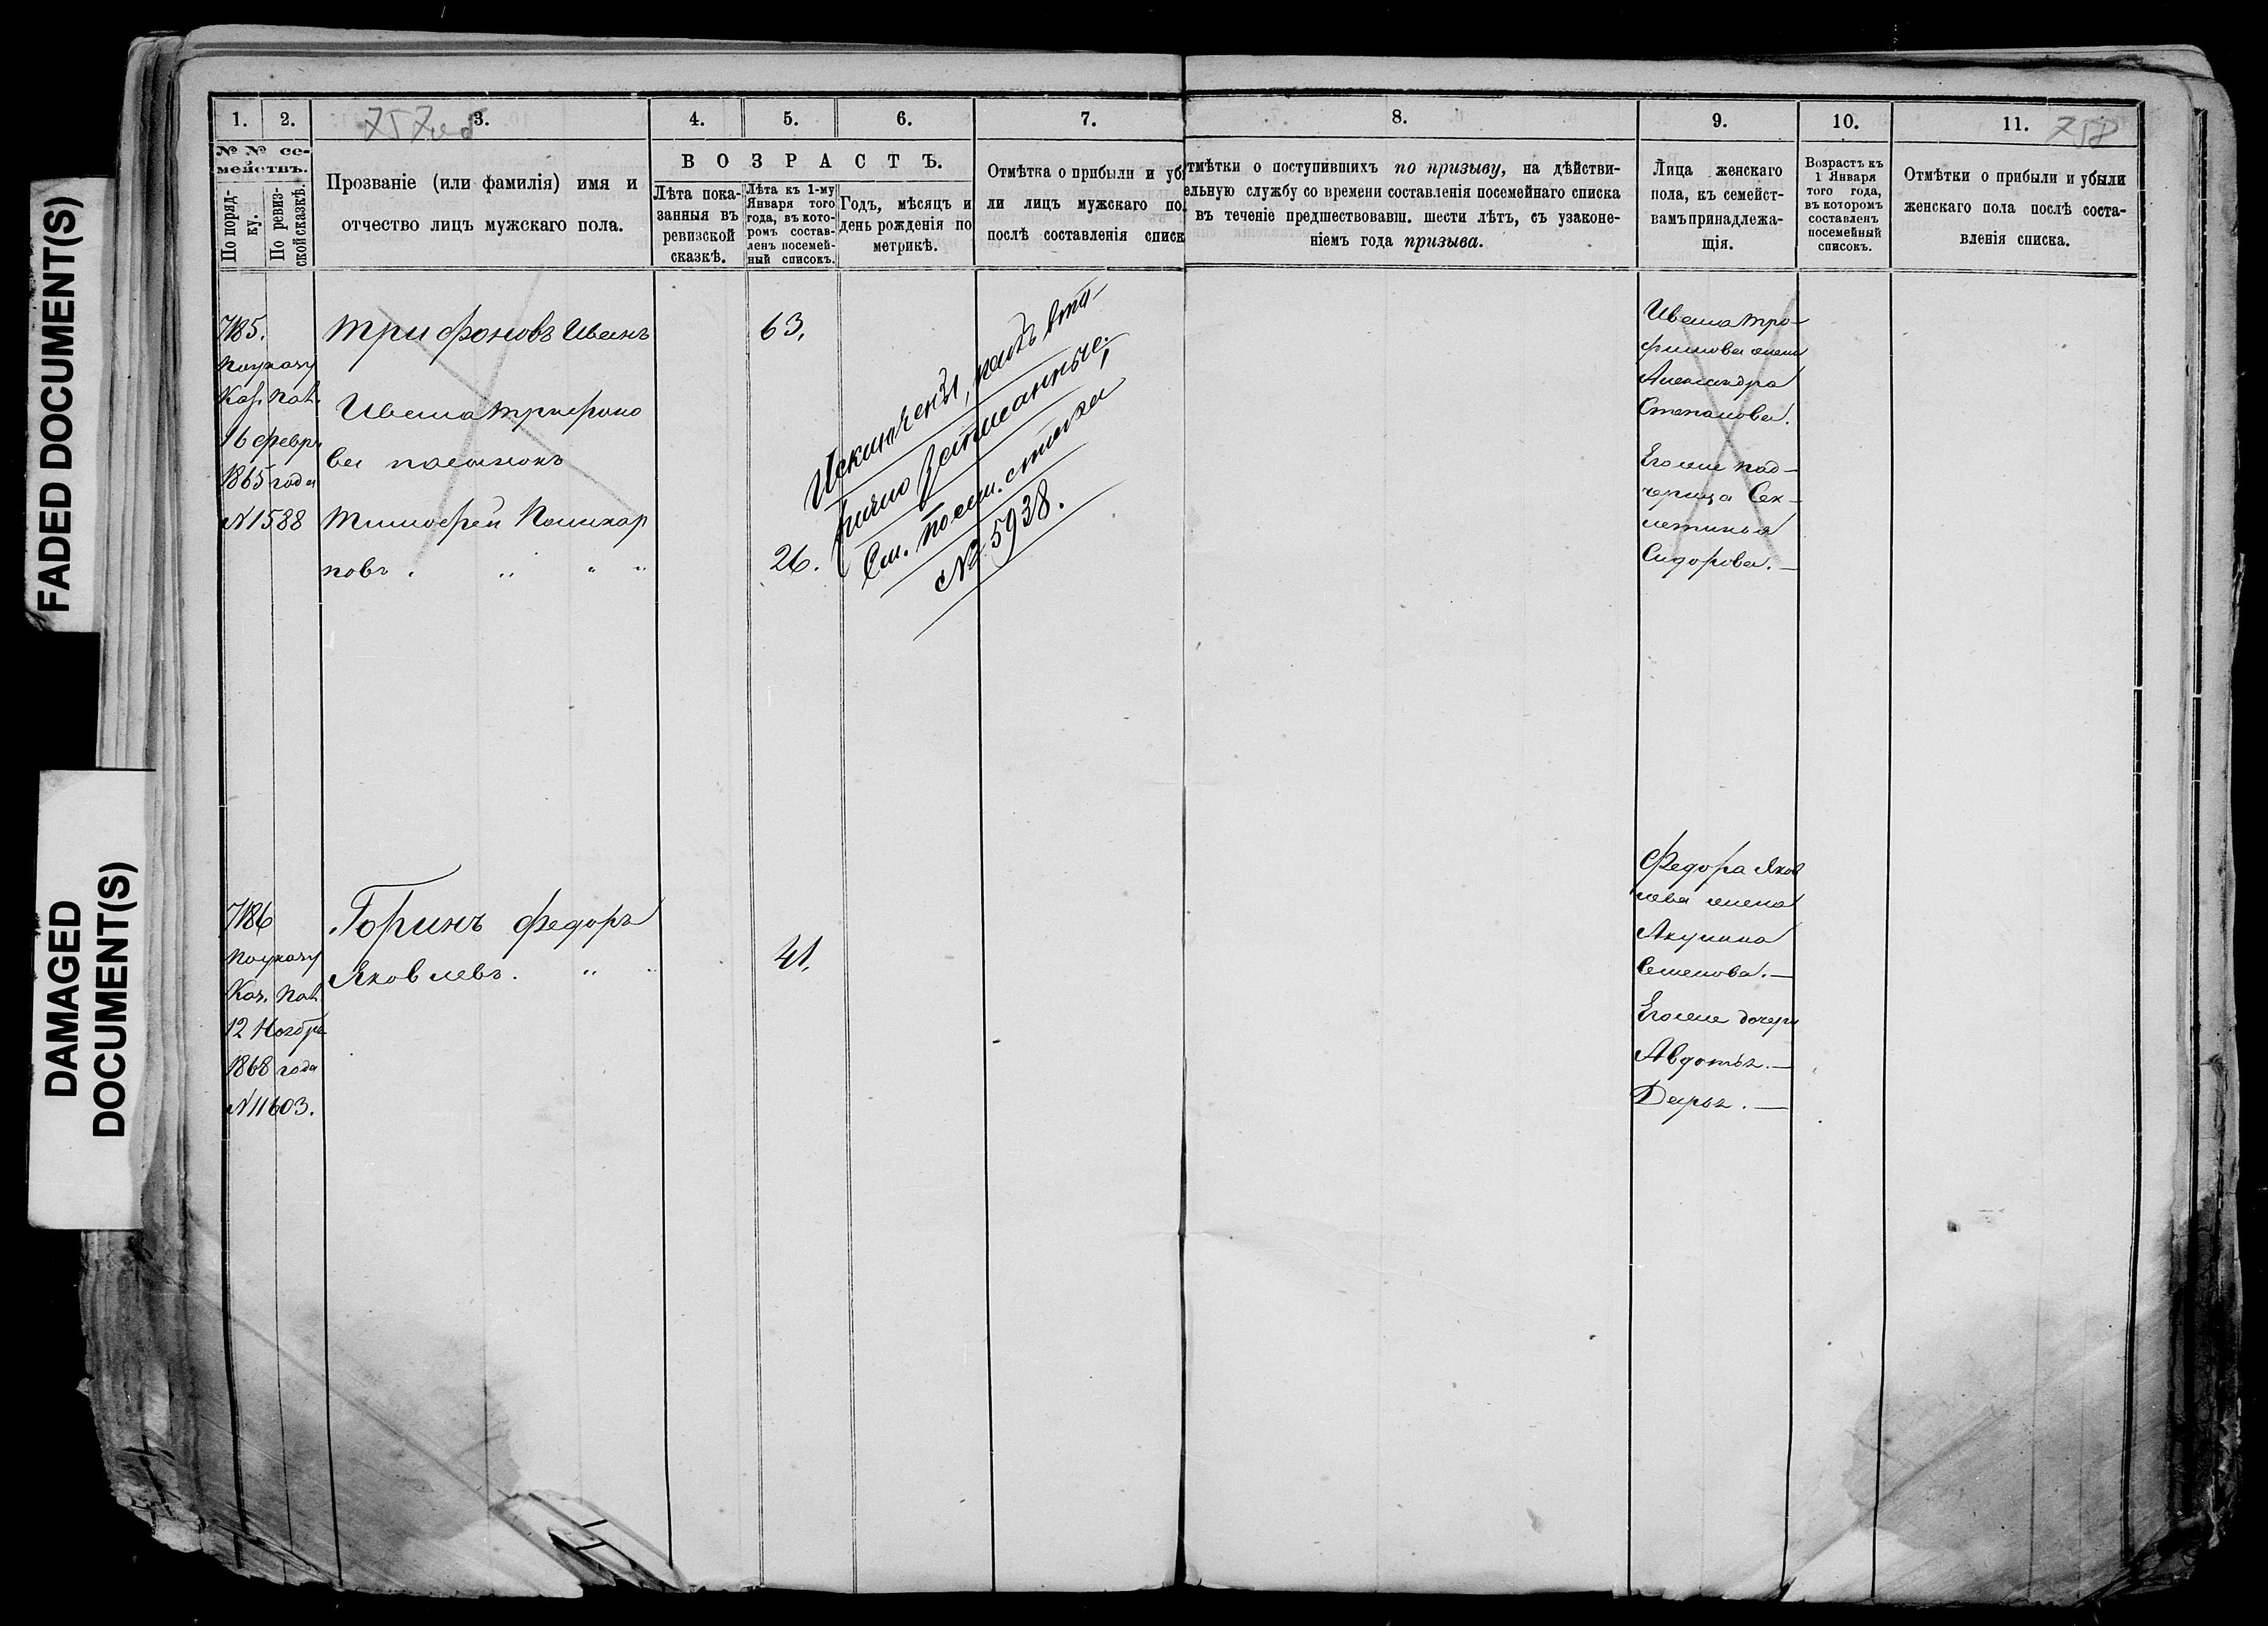 FADED DOCUMENT(S)
DAMAGED
DOCUMENT(S)
1.
2.
3.
4.
5.
6.
7.
8.
9.
10.
11.
757об
758
№ № се-
мействъ.
По поряд-
ку.
По ревиз-
ской сказкѣ.
Прозваніе (или фамилія) имя и
отчество лицъ мужскаго пола.
ВОЗРАСТЪ.
Лѣта пока-
занныя въ
ревизской
сказкѣ.
Лѣта къ 1-му
Января того
года, въ кото-
ромъ состав-
ленъ посемей-
ный списокъ.
Годъ, мѣсяцъ и
день рожденія по
метрикѣ.
Отмѣтка о прибыли и уб
ли лицъ мужскаго по
послѣ составленія списк
тмѣтки о поступившихъ по призыву, на дѣйстви-
ельную службу со времени составленія посемейнаго списка
въ теченіе предшествовавш. шести лѣтъ, съ узаконе-
ніемъ года призыва.
Лица женскаго
пола, къ семейст-
вамъ принадлежа-
щія.
Возрастъ къ
1 Января
того года,
въ которомъ
составленъ
посемейный
списокъ.
Отмѣтки о прибыли и убыли
женскаго пола послѣ соста-
вленія списка.
7185.
По указу
Каз. Пал.
16 февр
1865 года
№ 1588
Трифоновъ Иванъ
63.
Ивана Трифоно
ва пасынокъ
Тимофей Поликар
повъ. " " "
26.
Исключены, какъ вто-
рично записанные.
См. посем. списка
№ 5938.
Ивана Тро-
фимова жена
Александра
Степанова.
Его же пад-
черица Сек-
летинья
Сидорова. —
7186
По указу
Каз. Пал.
12 Ноябр
1868 года
№ 11603.
Горинъ Федоръ
Яковлевъ. " "
41.
Федора Яков
лева жена
Акулина
Семенова. —
Его же дочери
Авдотья. —
Дарья. —